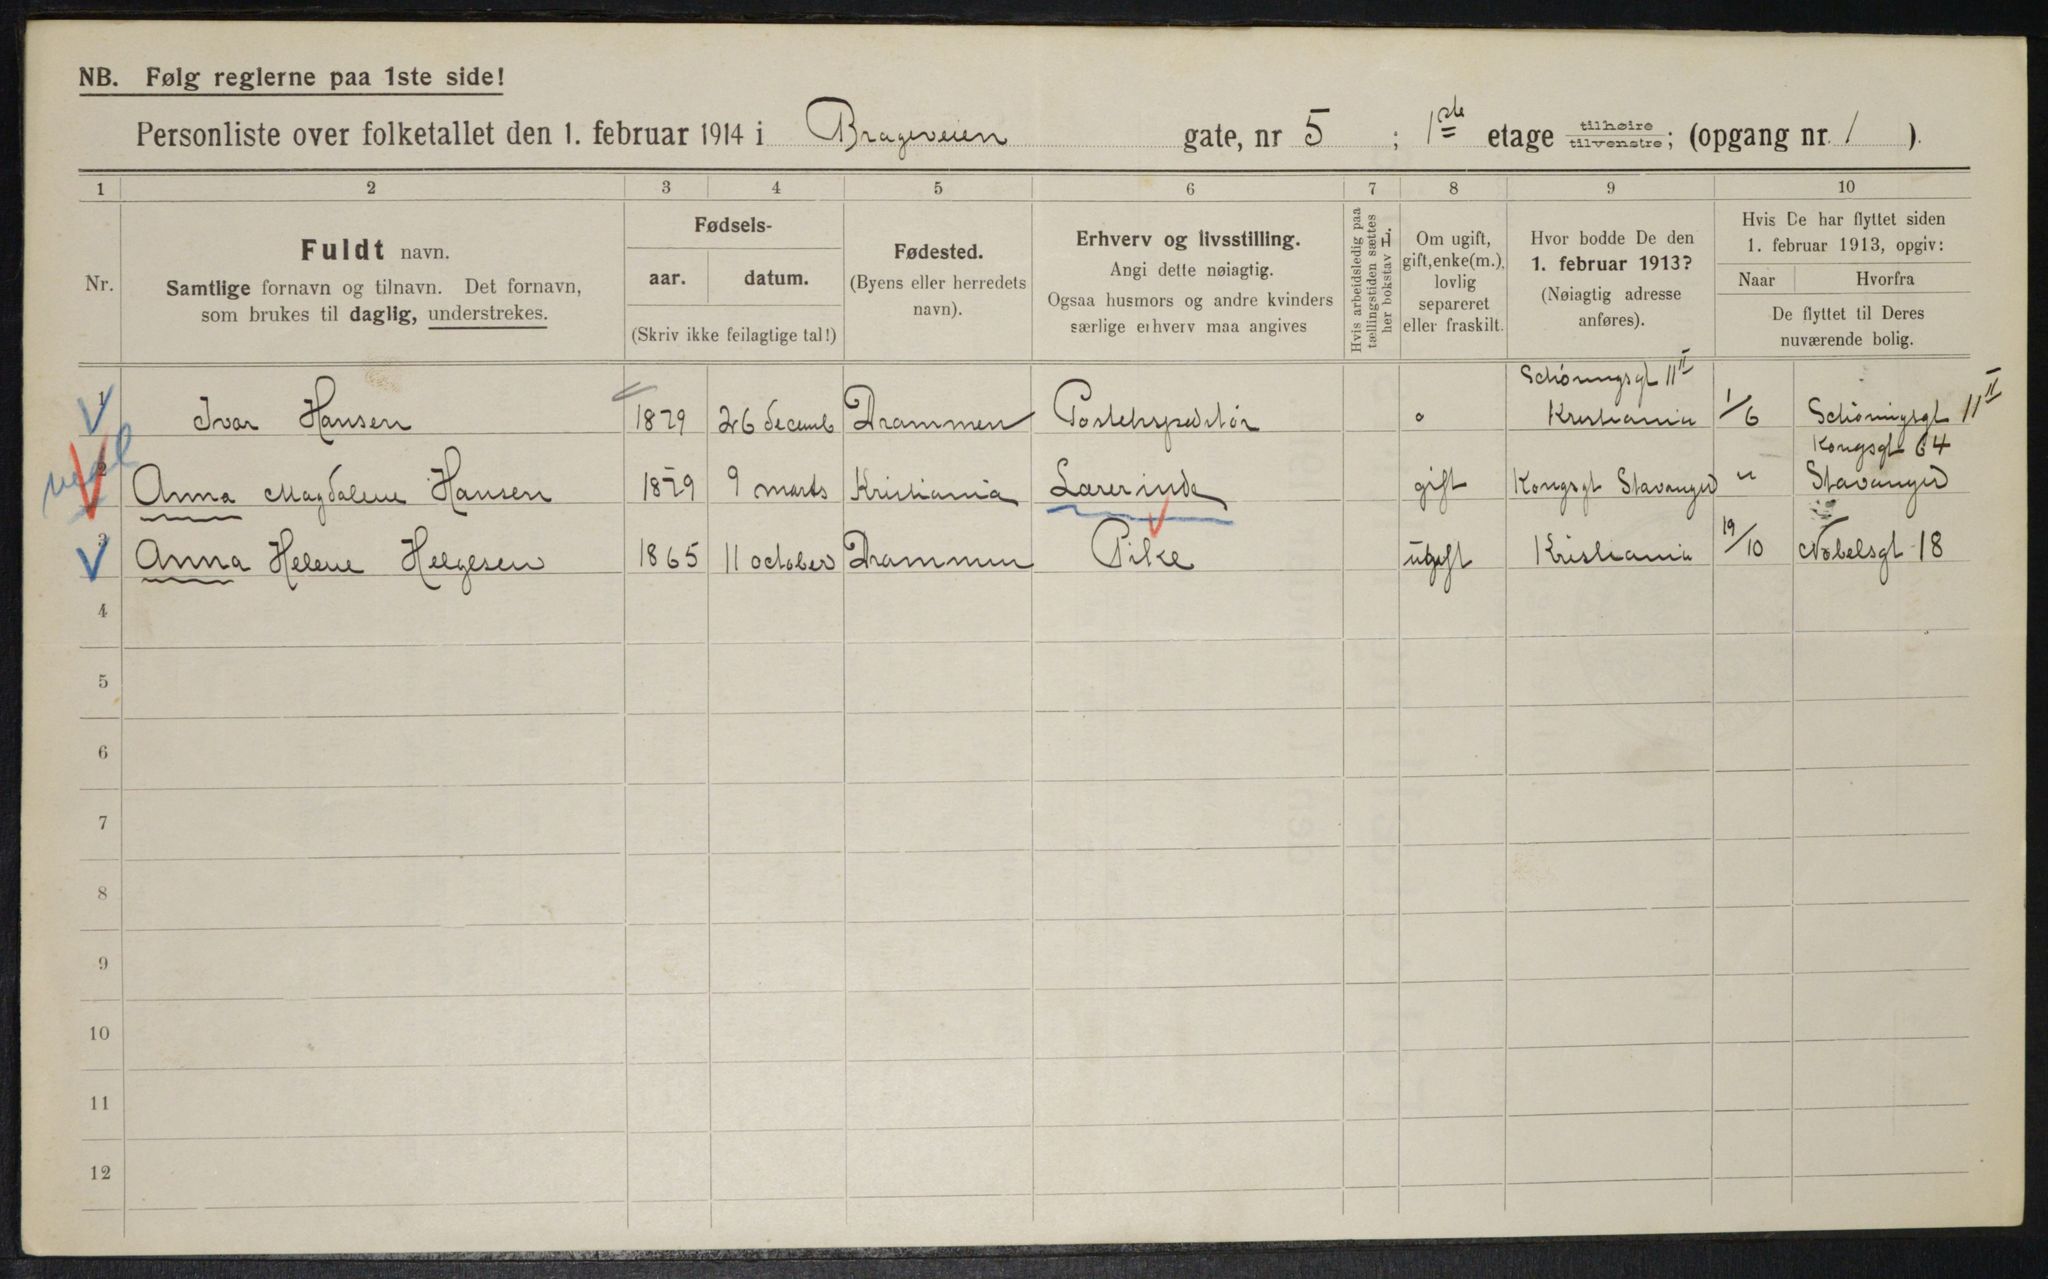 NB. Følg reglerne paa 1ste side!
Personliste over folketallet den 1. februar 1914 i Brageveien gate, nr 5 ; 1ste etage tilhøire tilvenstre; (opgang nr. 1 ).
1 2 3 4 5 6 7 8 9 10
Nr.
Fuldt navn.
Samtlige fornavn og tilnavn. Det fornavn,
som brukes til daglig, understrekes.
Fødsels-
aar. datum.
(Skriv ikke feilagtige tal!)
Fødested.
(Byens eller herredets
navn).
Erhverv og livsstilling.
Angi dette nøiagtig.
Ogsaa husmors og andre kvinders
særlige erhverv maa angives
Hvis arbeidsledig paa
tællingstiden sættes
her bokstav H.
Om ugift,
gift, enke(m.),
lovlig
separeret
eller fraskilt.
Hvor bodde De den
1. februar 1913?
(Nøiagtig adresse
anføres).
Hvis De har flyttet siden
1. februar 1913, opgiv:
Naar Hvorfra
De flyttet til Deres
nuværende bolig.
Schøningsgt 11 II
1 Ivar Hansen 1879 26 decemb Drammen Postekspeditør " Kristiania 1/6 Schøningsgt 11 II
Kongsgt 64
2 Anna Magdalene Hansen 1879 9 marts Kristiania Lærerinde gift Kongsgt Stavanger " Stavanger
3 Anna Helene Helgesen 1865 11 october Drammen Pike ugift Kristiania 19/10 Nobelsgt 18
4
5
6
7
8
9
10
11
12